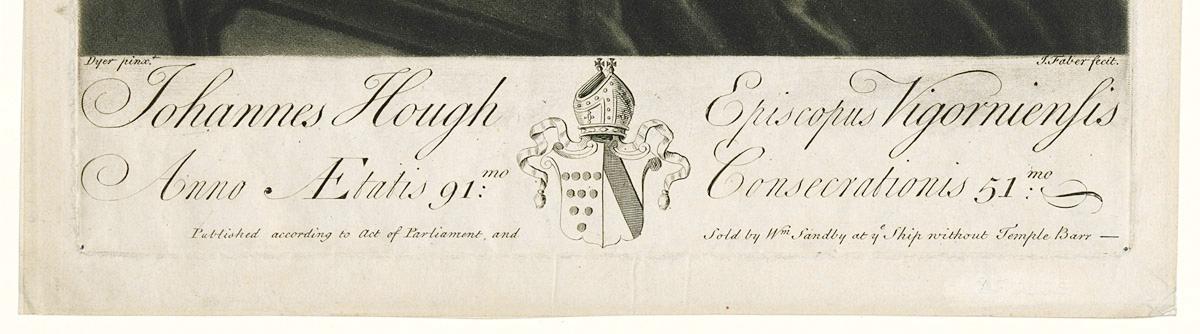 Dyer pinx.t
J. Faber fecit.
Johannes Hough Episcopus Vigorniensis
Anno Ætatis 91.mo Consecrationis 51.mo
Published according to Act of Parliament, and Sold by Wm Sandby at ye Ship without Temple Barr —